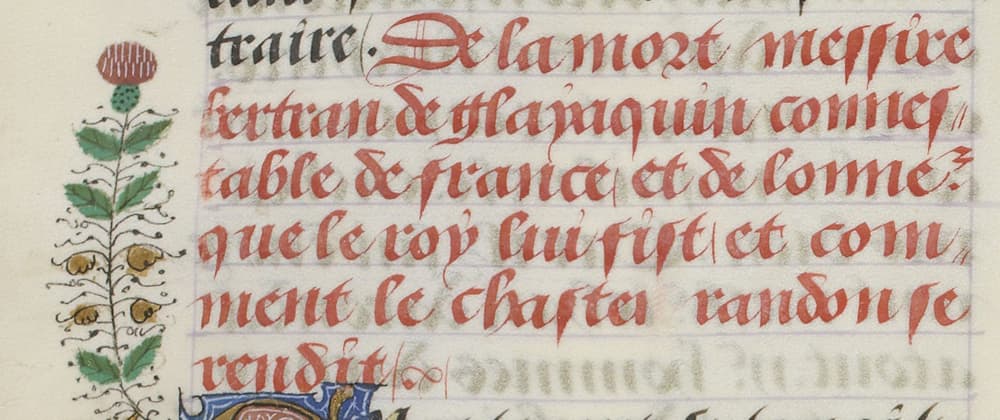 traire. De la mort messire
bertran de glayaquin connes〃
table de france et de lonneᷣ
que le roy lui fist et com〃
ment le chastel randon se
rendit